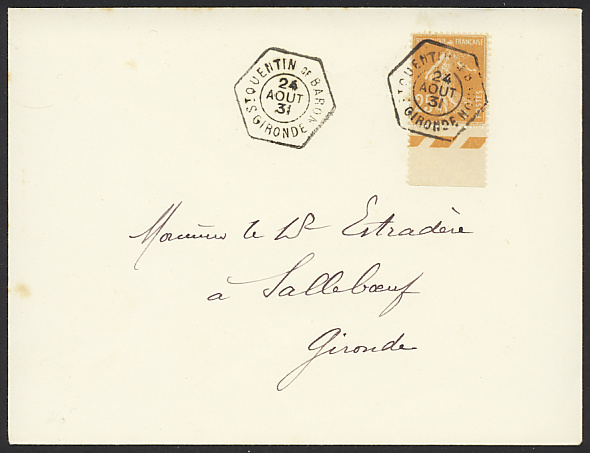 ST QUENTIN DE BARON
24
AOUT
31
GIRONDE
FRANÇAISE
ST QUENTIN DE B
24
AOUT
31
GIRONDE
25
Monsieur le Dr Estradère
à Sallebœuf
Gironde